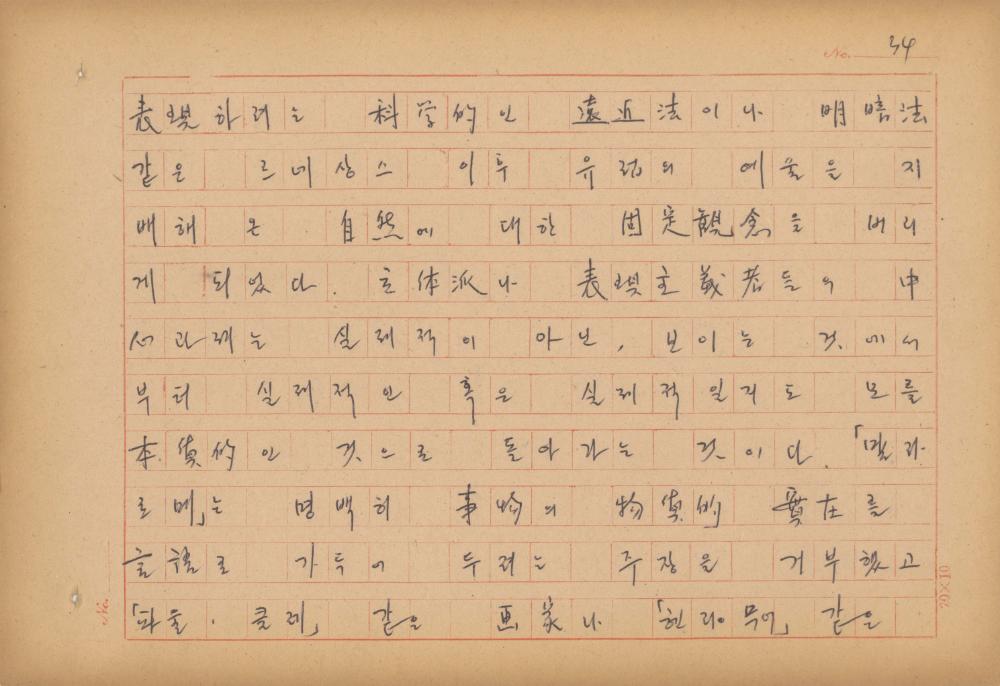 No. 34
表現하려는 科学的인 遠近法이나 明暗法
같은 르네상스 이후 유럽의 예술을 지
배해 온 自然에 대한 固定観念을 버리
게 되었다. 立体派나 表現主義者들의 中
心과제는 실례적이 아닌, 보이는 것에서
부터 실례적인 혹은 실례적일지도 모를
本質的인 것으로 돌아가는 것이다. 「말라
르메」는 명백히 事物의 物質的 實在를
言語로 가득이 두려는 주장을 거부했고
「파울·클레」 같은 画家나 「헨리·무어」 같은
No.
20×10